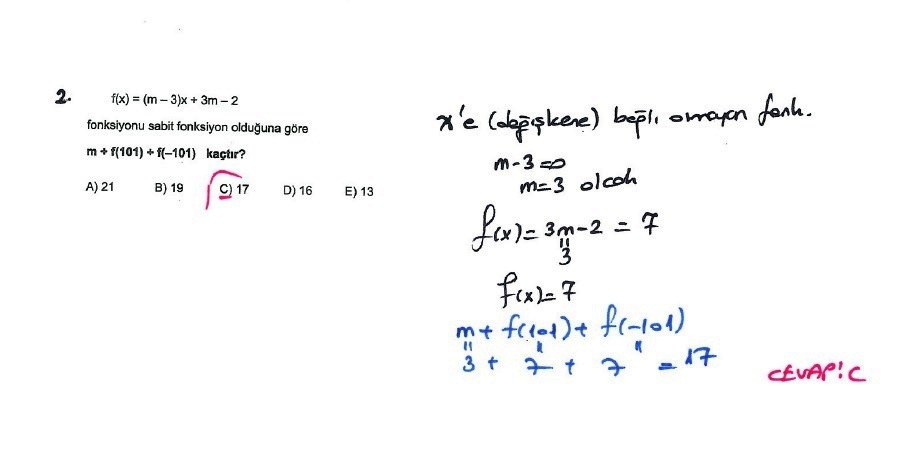 2. f(x) = (m – 3)x + 3m – 2
fonksiyonu sabit fonksiyon olduğuna göre
m + f(101) + f(–101) kaçtır?
A) 21 B) 19 C) 17 D) 16 E) 13
x'e (değişkene) bağlı omayan fonk.
m-3=0
m=3 olcak
f(x)= 3m-2 = 7
=
3
f(x)=7
m + f(101) + f(-101)
3 + 7 + 7 = 17
CEVAP: C